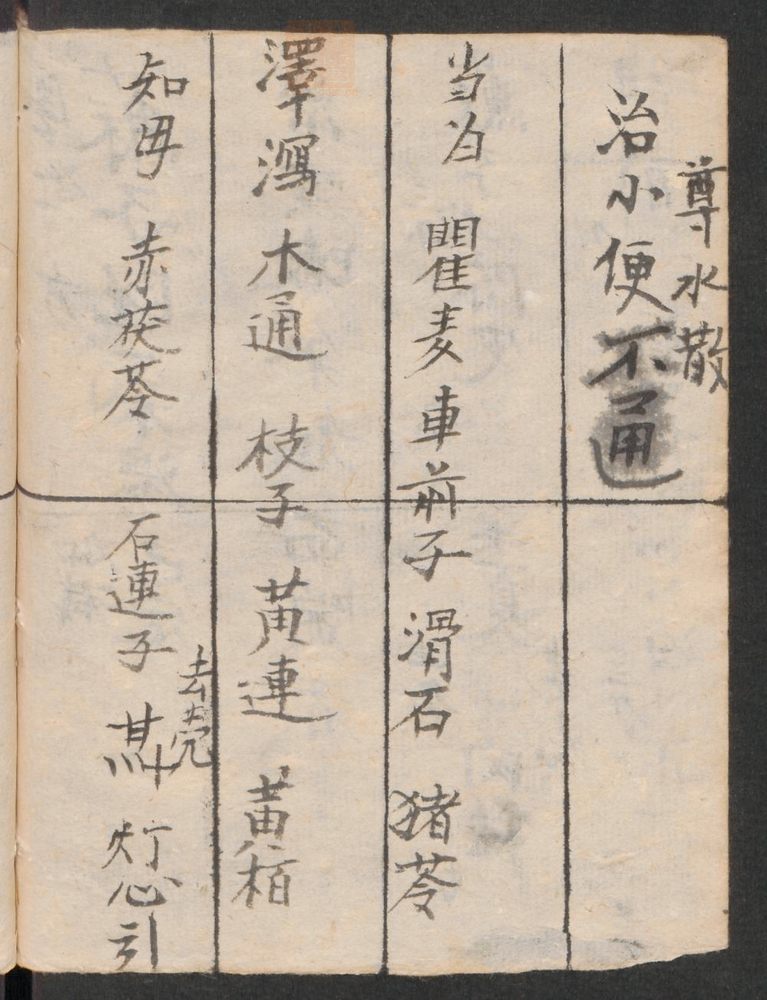 尊水散
治小便不通
当为 瞿麦 車前子 滑石 猪苓
澤瀉 木通 枝子 黄連 黄栢
知毋 赤茯苓 石連子 去壳 灯心引